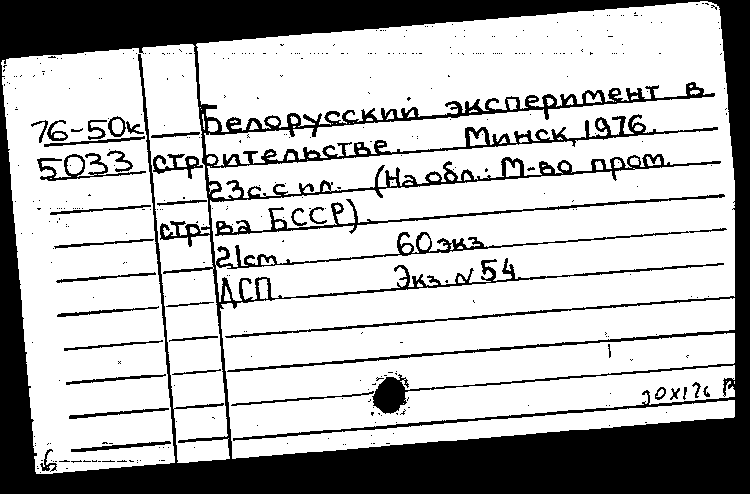 76-50к Белорусский эксперимент в
5033 строительстве. Минск, 1976.
23с. с ил. (На обл.: М-во пром.
стр-ва БССР).
21см. 60экз
ДСП. Экз. № 54